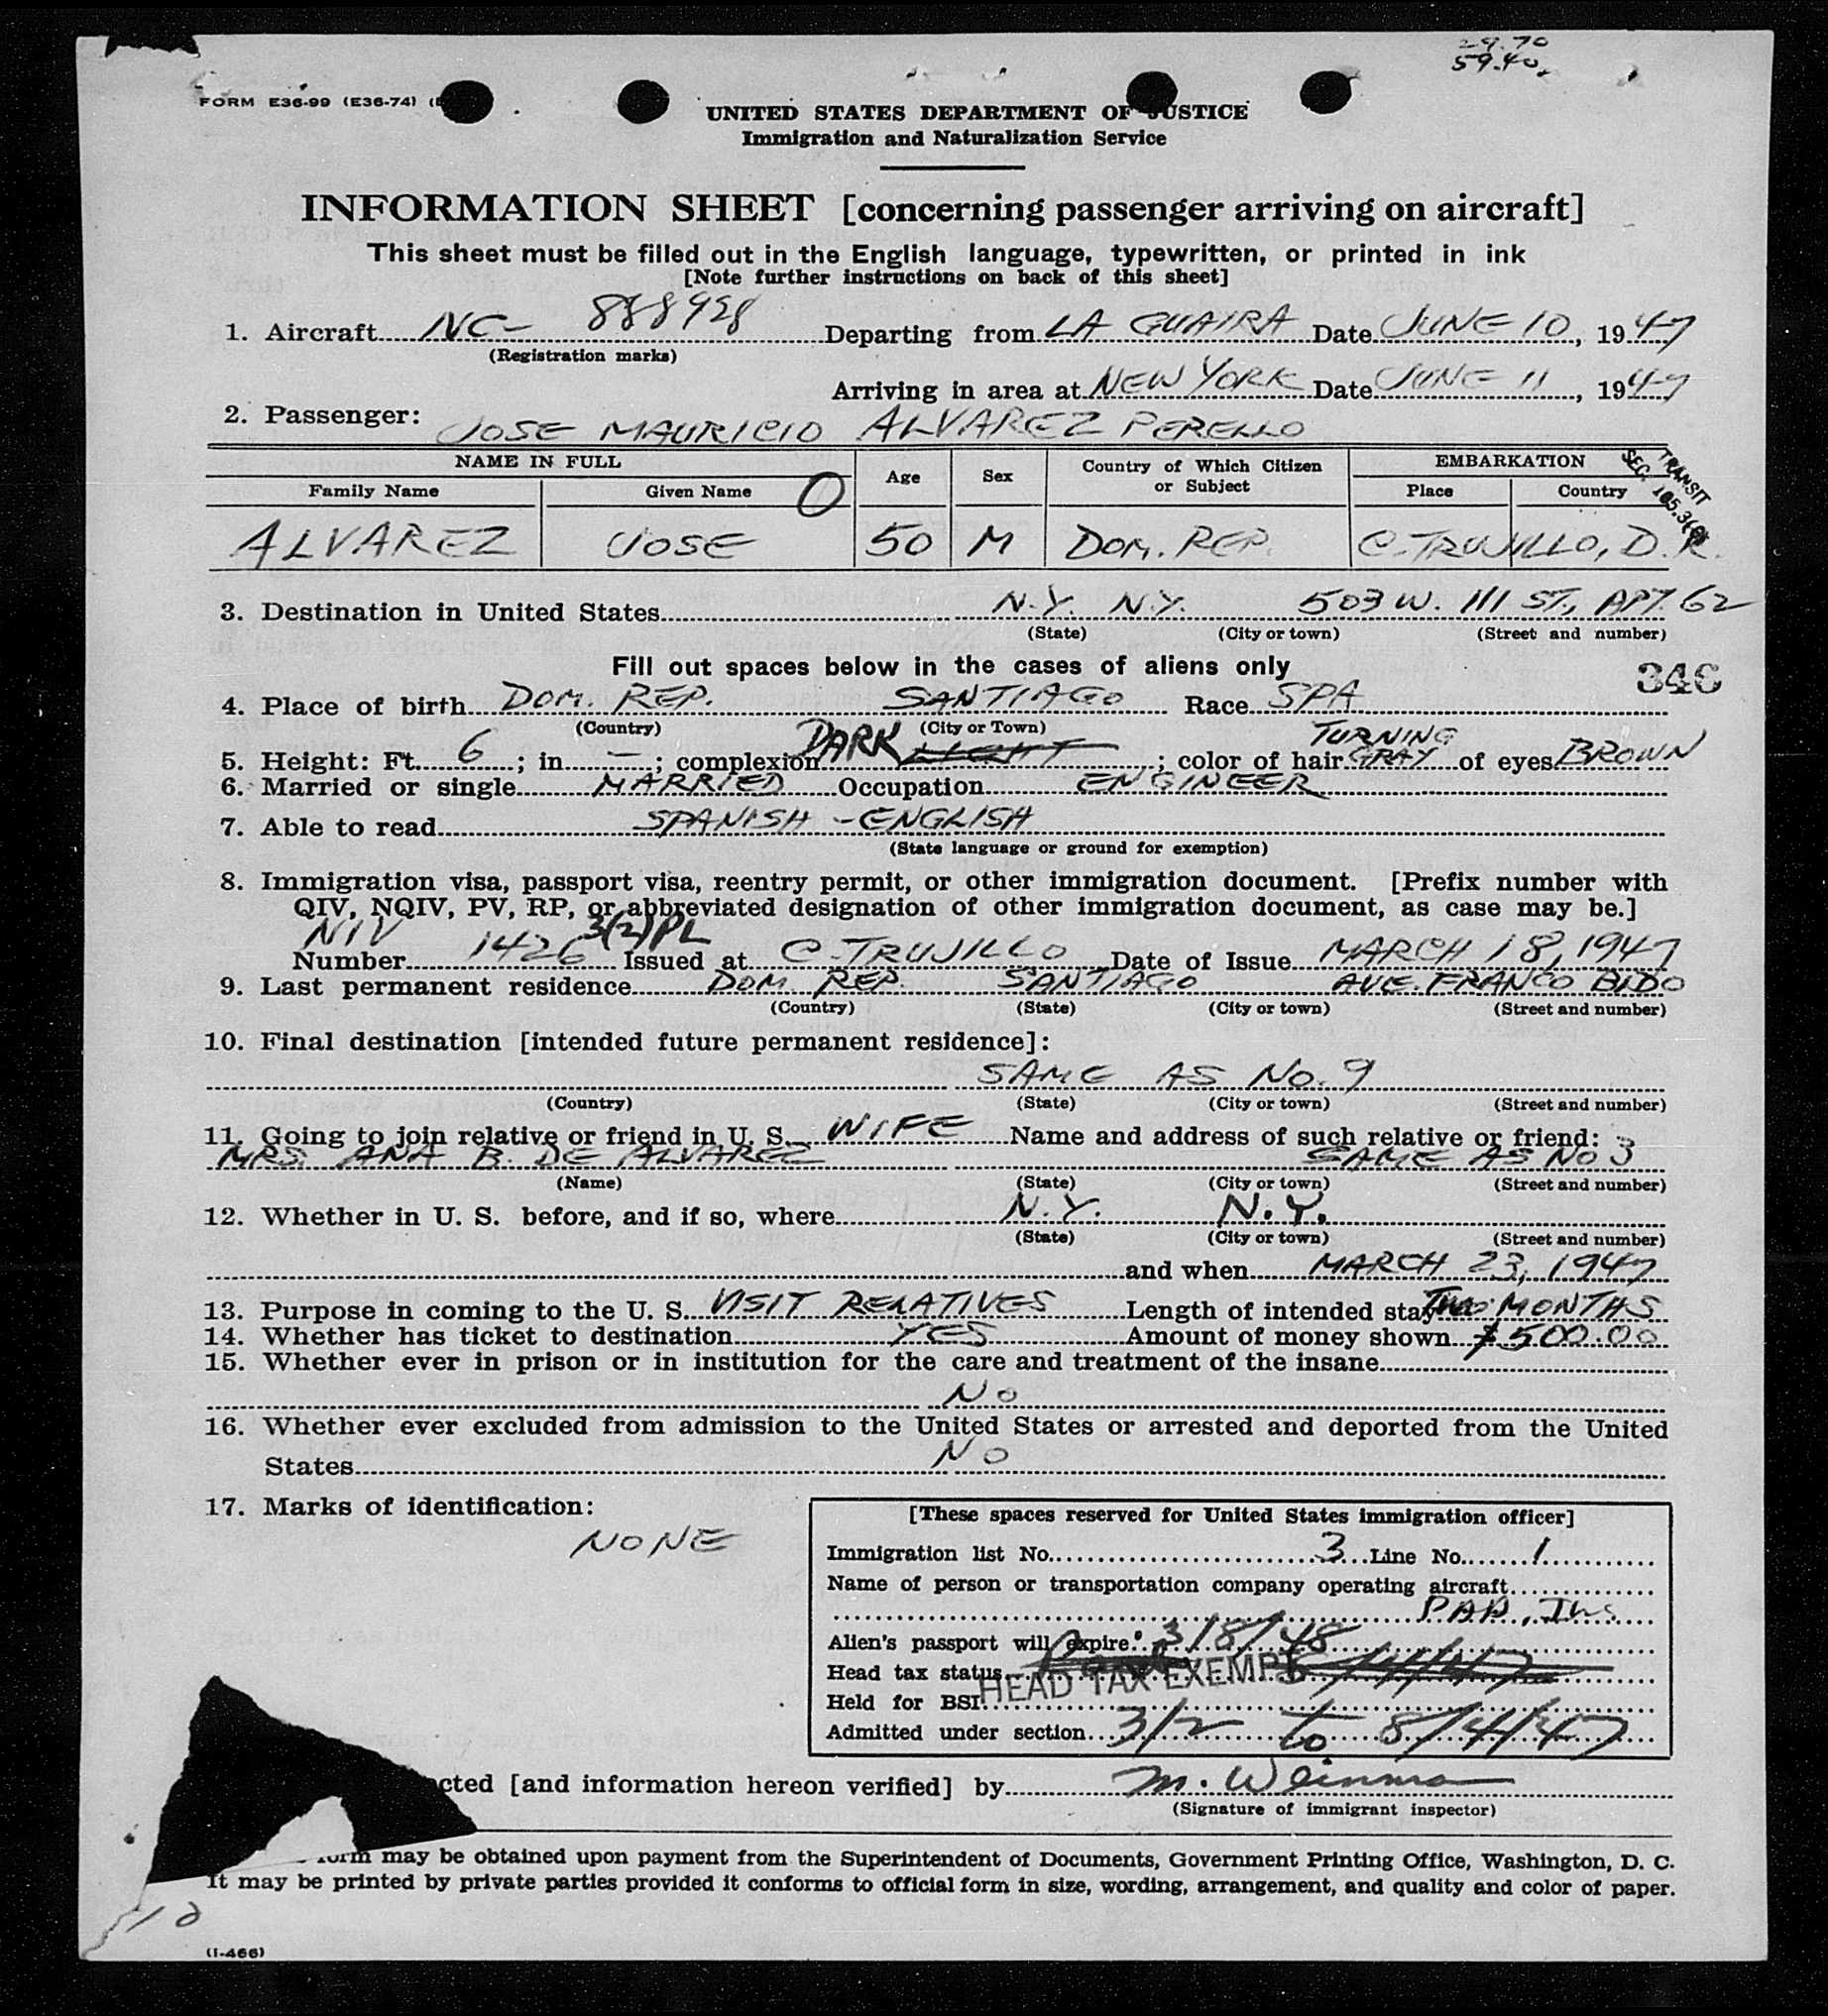 29.70
59.40
FORM E36-99 (E36-74)
UNITED STATES DEPARTMENT OF JUSTICE
Immigration and Naturalization Service
INFORMATION SHEET [concerning passenger arriving on aircraft]
This sheet must be filled out in the English language, typewritten, or printed in ink
[Note further instructions on back of this sheet]
1. Aircraft NC- 888928 Departing from LA GUAIRA Date JUNE 10, 1947
(Registration marks)
Arriving in area at NEW YORK Date JUNE 11, 1947
2. Passenger: JOSE MAURICIO ALVAREZ PERELLO
NAME IN FULL Age Sex Country of Which Citizen or Subject EMBARKATION
Family Name Given Name O Place Country
TRANSIT
SEC. 105.3
ALVAREZ JOSE 50 M DOM. REP. C. TRUJILLO, D.R.
3. Destination in United States N.Y. N.Y. 503 W. 111 ST., APT. 62
(State) (City or town) (Street and number)
Fill out spaces below in the cases of aliens only
346
4. Place of birth DOM. REP. SANTIAGO Race SPA
(Country) (City or Town)
5. Height: Ft. 6; in. —; complexion DARK LIGHT; color of hair TURNING GRAY of eyes BROWN
6. Married or single MARRIED Occupation ENGINEER
7. Able to read SPANISH - ENGLISH
(State language or ground for exemption)
8. Immigration visa, passport visa, reentry permit, or other immigration document. [Prefix number with
QIV, NQIV, PV, RP, or abbreviated designation of other immigration document, as case may be.]
NIV 3(2) PL
Number 1426 Issued at C. TRUJILLO Date of Issue MARCH 18, 1947
9. Last permanent residence DOM. REP. SANTIAGO AVE. FRANCO BIDO
(Country) (State) (City or town) (Street and number)
10. Final destination [intended future permanent residence]:
SAME AS NO. 9
(Country) (State) (City or town) (Street and number)
11. Going to join relative or friend in U. S. WIFE Name and address of such relative or friend:
MRS. ANA B. DE ALVAREZ SAME AS NO 3
(Name) (State) (City or town) (Street and number)
12. Whether in U. S. before, and if so, where N.Y. N.Y.
(State) (City or town) (Street and number)
and when MARCH 23, 1947
13. Purpose in coming to the U. S. VISIT RELATIVES Length of intended stay TWO MONTHS
14. Whether has ticket to destination YES Amount of money shown $500.00
15. Whether ever in prison or in institution for the care and treatment of the insane
NO
16. Whether ever excluded from admission to the United States or arrested and deported from the United
States NO
17. Marks of identification:
NONE
[These spaces reserved for United States immigration officer]
Immigration list No. 3 Line No. 1
Name of person or transportation company operating aircraft
PAA, Inc
Alien's passport will expire 3/8/48
Head tax status
HEAD TAX EXEMPT
Held for BSI
Admitted under section 3/2 to 8/4/47
cted [and information hereon verified] by M.
(Signature of immigrant inspector)
form may be obtained upon payment from the Superintendent of Documents, Government Printing Office, Washington, D. C.
It may be printed by private parties provided it conforms to official form in size, wording, arrangement, and quality and color of paper.
(I-466)